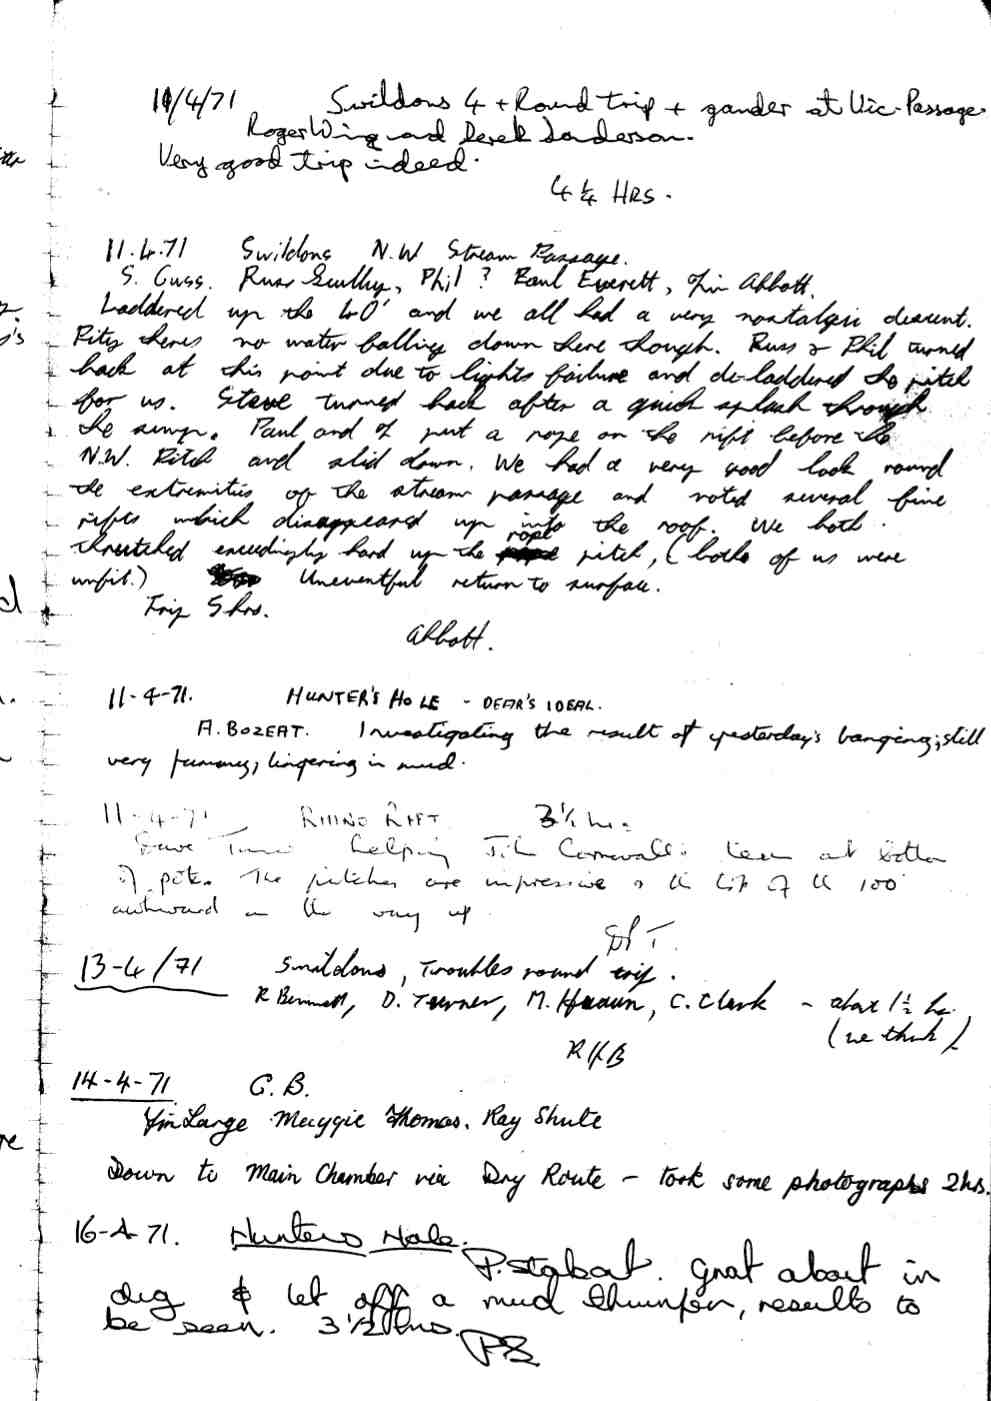 11/4/71 Swildons 4 + Round trip + gander at Vic. Passage.
Roger Wing and Derek Sanderson.
Very good trip indeed.
4 1/4 HRS.
11.4.71 Swildons N.W Stream Passage.
S. Guss. Russ Scully, Phil ? Paul Everett, Jim Abbott.
Laddered up the 40' and we all had a very nostalgic descent.
Pity theres no water falling down there though. Russ & Phil turned
back at this point due to lights failure and de-laddered the pitch
for us. Steve turned back after a quick splash through
the sump. Paul and I put a rope on the rift before the
N.W. Pitch and slid down. We had a very good look round
the extremities of the stream passage and noted several fine
rifts which disappeared up into the roof. We both
thrutched exceedingly hard up the rope pitch, (both of us were
unfit.) Uneventful return to surface.
Trip 5 hrs.
Abbott.
11-4-71. HUNTER'S HOLE - DEAR'S IDEAL.
A. BOZEAT. Investigating the result of yesterday's banging; still
very fumey, lingering in mud.
11-4-71 RHINO RIFT 3 1/2 hrs
Dave helping Cornwall's team at bottom
of pitch. The pitches are impressive & the lip of the 100'
awkward on the way up
D T.
13-4/71 Swildons, Troubles round trip.
R Bennett, D. Turner, M. C. Clark - about 1 1/2 hrs
(we think)
RHB
14-4-71 G.B.
Jim Large Maggie Thomas. Ray Shute
Down to Main Chamber via Dry Route - took some photographs 2hs.
16-4-71. Hunters Hole.
P. Stobart. Gnat about in
dig & let off a mud thumper, results to
be seen. 3 1/2 hrs.
PS